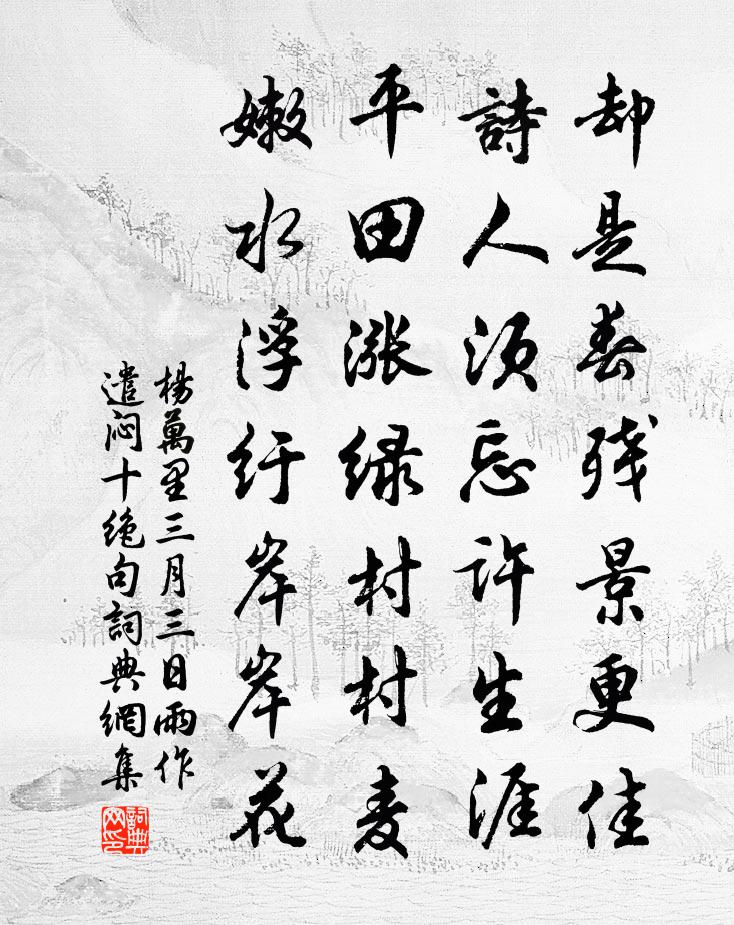 却是春残景更佳
詩人须忘許生涯
平田涨绿村村麦
嫩水浮红岸岸花
楊萬里三月三日雨作
遣闷十绝句詞典網集
詞典网印